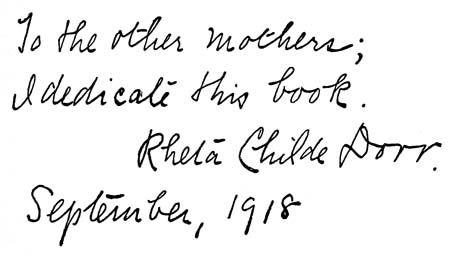 To the other mothers;
I dedicate this book.
Rheta Childe Dorr.
September, 1918